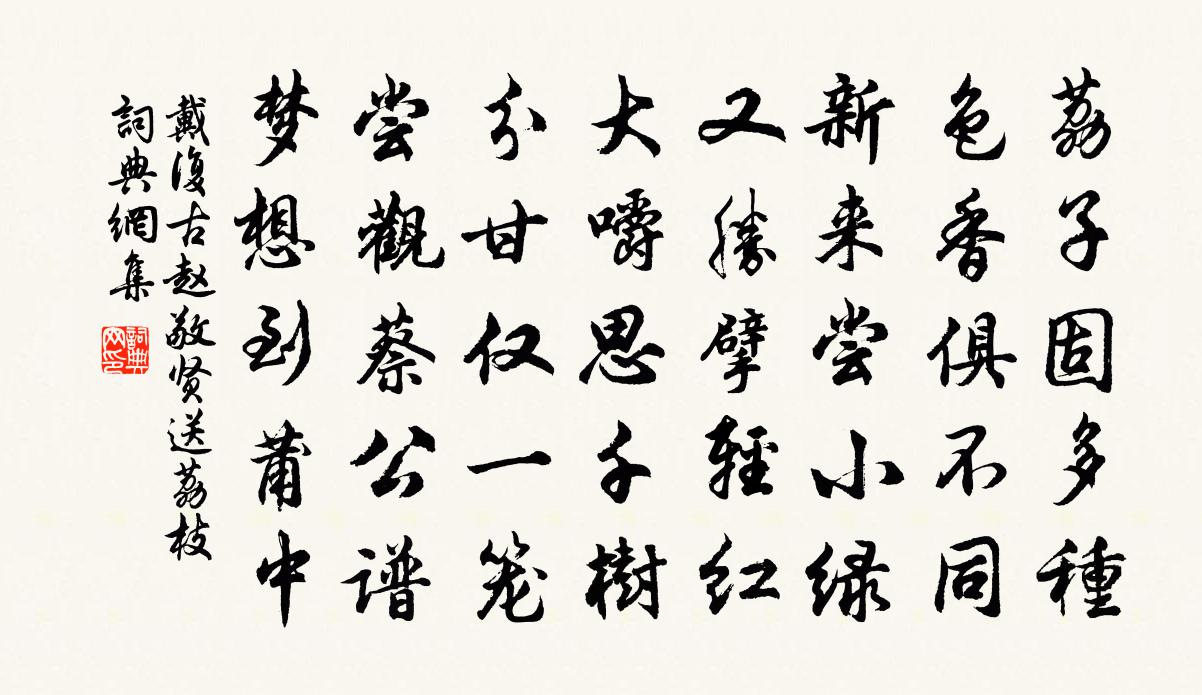 荔子固多種
色香俱不同
新来尝小绿
又勝擘輕红
大嚼思千樹
分甘仅一笼
尝觀蔡公谱
梦想到莆中
戴復古赵敬贤送荔枝
詞典網集
詞典网印